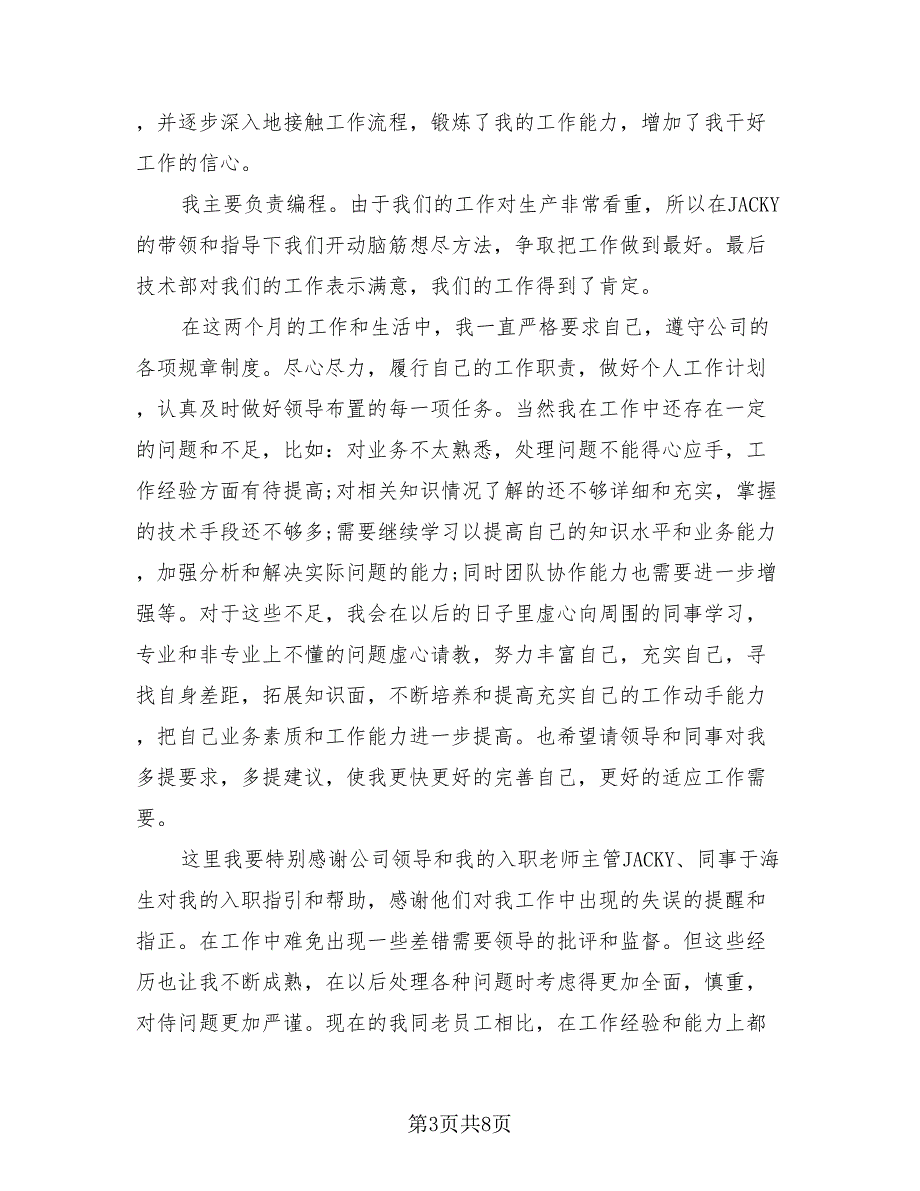 ，并逐步深入地接触工作流程，锻炼了我的工作能力，增加了我干好
工作的信心。
我主要负责编程。由于我们的工作对生产非常看重，所以在JACKY
的带领和指导下我们开动脑筋想尽方法，争取把工作做到最好。最后
技术部对我们的工作表示满意，我们的工作得到了肯定。
在这两个月的工作和生活中，我一直严格要求自己，遵守公司的
各项规章制度。尽心尽力，履行自己的工作职责，做好个人工作计划
，认真及时做好领导布置的每一项任务。当然我在工作中还存在一定
的问题和不足，比如：对业务不太熟悉，处理问题不能得心应手，工
作经验方面有待提高;对相关知识情况了解的还不够详细和充实，掌握
的技术手段还不够多;需要继续学习以提高自己的知识水平和业务能力
，加强分析和解决实际问题的能力;同时团队协作能力也需要进一步增
强等。对于这些不足，我会在以后的日子里虚心向周围的同事学习，
专业和非专业上不懂的问题虚心请教，努力丰富自己，充实自己，寻
找自身差距，拓展知识面，不断培养和提高充实自己的工作动手能力
，把自己业务素质和工作能力进一步提高。也希望请领导和同事对我
多提要求，多提建议，使我更快更好的完善自己，更好的适应工作需
要。
这里我要特别感谢公司领导和我的入职老师主管JACKY、同事于海
生对我的入职指引和帮助，感谢他们对我工作中出现的失误的提醒和
指正。在工作中难免出现一些差错需要领导的批评和监督。但这些经
历也让我不断成熟，在以后处理各种问题时考虑得更加全面，慎重，
对侍问题更加严谨。现在的我同老员工相比，在工作经验和能力上都
第3页共8页